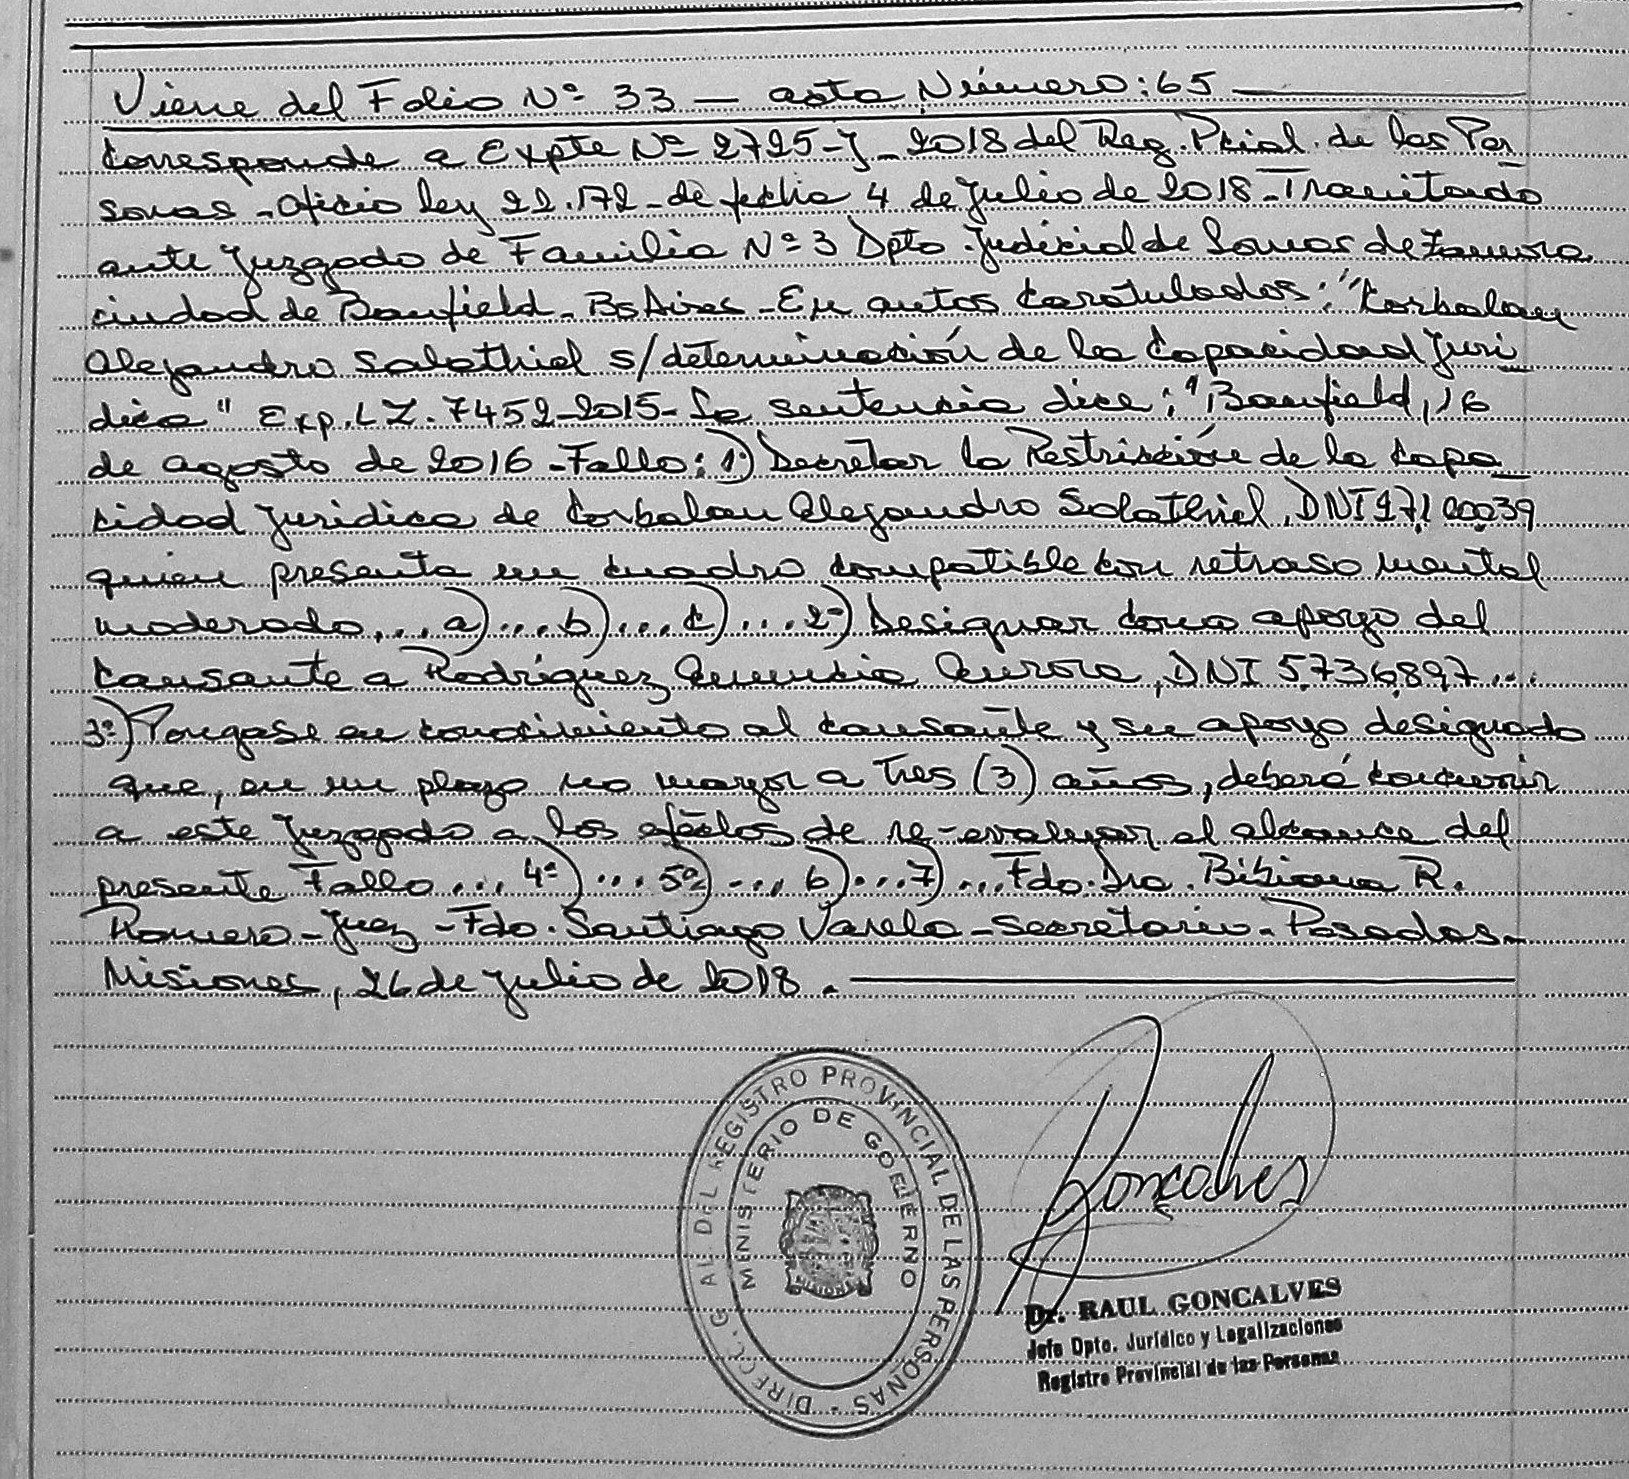 Viene del Folio Nº 33 — acta Número: 65
Corresponde a Expte Nº 2725-J-2018 del Reg. Pcial. de las Per
sonas - oficio ley 22.172 - de fecha 4 de Julio de 2018 - Tramitado
ante Juzgado de Familia Nº 3 Dpto Judicial de Lomas de Zamora
ciudad de Banfield - Bs Aires - En autos caratulados: "Corbalan
Alejandro Salathiel s/determinación de la Capacidad Juri
dica" Exp. LZ. 7452-2015 - La sentencia dice: "Banfield, 16
de agosto de 2016 - Fallo: 1º) Decretar la Restricción de la Capa_
cidad Juridica de Corbalan Alejandro Salathiel, DNI 27.100.039
quien presenta un cuadro compatible con retraso mental
moderado, ... a) ... b) ... c) ... 2º) Designar como apoyo del
causante a Rodríguez Anuncia Aurora, DNI 5.736.897 ...
3º) Pongase en conocimiento al causante y su apoyo designado
que, en un plazo no mayor a Tres (3) años, deberá concurrir
a este Juzgado a los efectos de re-evaluar el alcance del
presente Fallo ... 4º) ... 5º) ... 6) ... 7) ... Fdo. Dra. Bibiana R.
Romero - Juez - Fdo. Santiago Varela - Secretario - Posadas -
Misiones, 26 de Julio de 2018.
DIREC. G AL DEL REGISTRO PROVINCIAL DE LAS PERSONAS
MINISTERIO DE GOBIERNO
MISIONES
Goncalves
Dr. RAUL GONCALVES
Jefe Dpto. Jurídico y Legalizaciones
Registro Provincial de las Personas